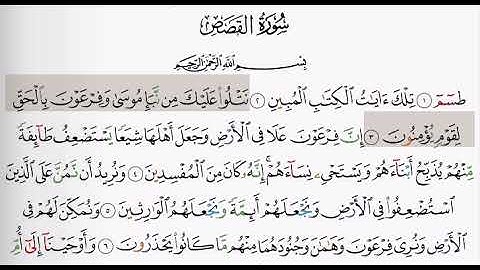 سُورَةُ القَصَصِ
بِسْمِ اللَّهِ الرَّحْمَٰنِ الرَّحِيمِ
طسٓمٓ ١ تِلْكَ ءَايَٰتُ الْكِتَٰبِ الْمُبِينِ ٢ نَتْلُوا۟ عَلَيْكَ مِن نَّبَإِ مُوسَىٰ وَفِرْعَوْنَ بِالْحَقِّ
لِقَوْمٍ يُؤْمِنُونَ ٣ إِنَّ فِرْعَوْنَ عَلَا فِي الْأَرْضِ وَجَعَلَ أَهْلَهَا شِيَعًا يَسْتَضْعِفُ طَآئِفَةً
مِّنْهُمْ يُذَبِّحُ أَبْنَآءَهُمْ وَيَسْتَحْيِۦ نِسَآءَهُمْ ۚ إِنَّهُۥ كَانَ مِنَ الْمُفْسِدِينَ ٤ وَنُرِيدُ أَن نَّمُنَّ عَلَى الَّذِينَ
اسْتُضْعِفُوا۟ فِي الْأَرْضِ وَنَجْعَلَهُمْ أَئِمَّةً وَنَجْعَلَهُمُ الْوَٰرِثِينَ ٥ وَنُمَكِّنَ لَهُمْ فِي
الْأَرْضِ وَنُرِيَ فِرْعَوْنَ وَهَٰمَٰنَ وَجُنُودَهُمَا مِنْهُم مَّا كَانُوا۟ يَحْذَرُونَ ٦ وَأَوْحَيْنَآ إِلَىٰٓ أُمِّ